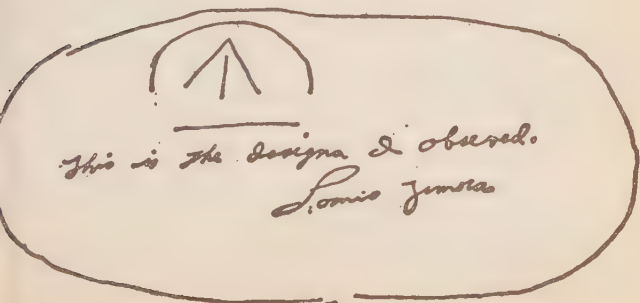 This is the designa I obserred.
Lonnie Zamora